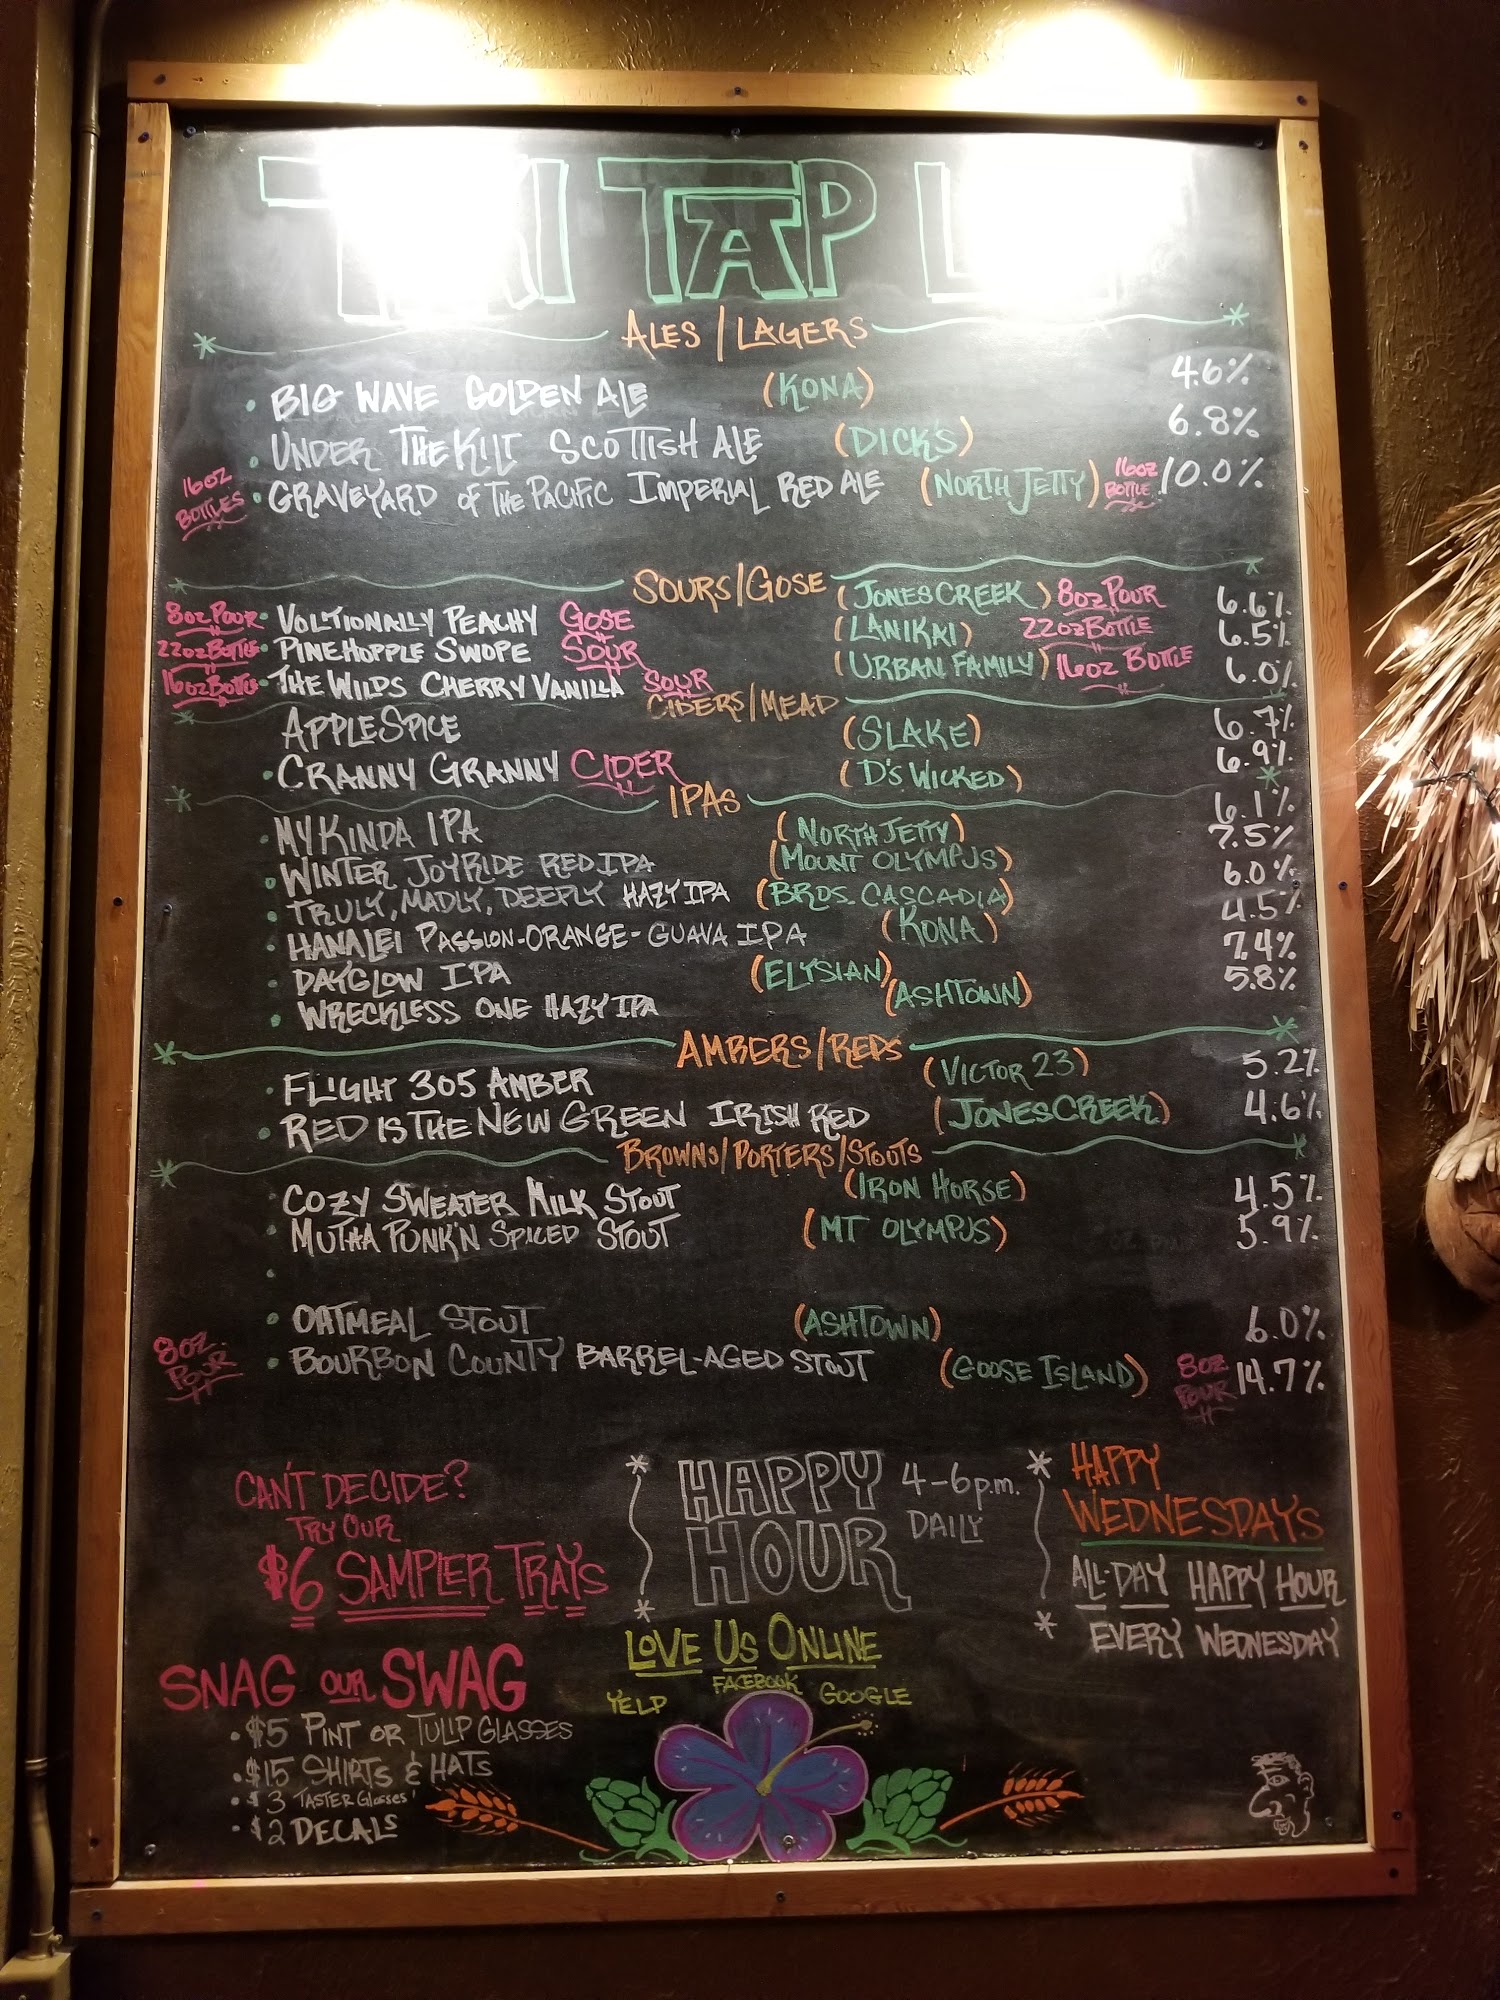 TAP
ALES/LAGERS
• BIG WAVE GOLDEN ALE (KONA) 4.6%
• UNDER THE KILT SCOTTISH ALE (DICK'S) 6.8%
16OZ BOTTLES • GRAVEYARD OF THE PACIFIC IMPERIAL RED ALE (NORTH JETTY) 16OZ BOTTLE 10.0%
SOURS/GOSE
8OZ POUR • VOLTIONALLY PEACHY GOSE (JONES CREEK) 8OZ POUR 6.6%
22OZ BOTTLE • PINEHOPPLE SWOPE SOUR (LANIKAI) 22OZ BOTTLE 6.5%
16OZ BOTTLE • THE WILDS CHERRY VANILLA SOUR (URBAN FAMILY) 16OZ BOTTLE 6.0%
CIDERS/MEAD
APPLE SPICE (SLAKE) 6.7%
• CRANNY GRANNY CIDER (D'S WICKED) 6.9%
IPAS
• MY KINDA IPA (NORTH JETTY) 6.1%
• WINTER JOYRIDE RED IPA (MOUNT OLYMPUS) 7.5%
• TRULY, MADLY, DEEPLY HAZY IPA (BROS. CASCADIA) 6.0%
• HANALEI PASSION-ORANGE-GUAVA IPA (KONA) 4.5%
• DAYGLOW IPA (ELYSIAN) 7.4%
• WRECKLESS ONE HAZY IPA (ASHTOWN) 5.8%
AMBERS/REDS
• FLIGHT 305 AMBER (VICTOR 23) 5.2%
• RED IS THE NEW GREEN IRISH RED (JONES CREEK) 4.6%
BROWNS/PORTERS/STOUTS
• COZY SWEATER MILK STOUT (IRON HORSE) 4.5%
• MUTHA PUNK'N SPICED STOUT (MT OLYMPUS) 5.9%
• OATMEAL STOUT (ASHTOWN) 6.0%
8OZ POUR • BOURBON COUNTY BARREL-AGED STOUT (GOOSE ISLAND) 8OZ POUR 14.7%
CAN'T DECIDE?
TRY OUR
$6 SAMPLER TRAYS
HAPPY
HOUR
4-6p.m.
DAILY
HAPPY
WEDNESDAYS
ALL-DAY HAPPY HOUR
EVERY WEDNESDAY
LOVE US ONLINE
YELP FACEBOOK GOOGLE
SNAG OUR SWAG
• $5 PINT OR TULIP GLASSES
• $15 SHIRTS & HATS
• $3 TASTER Glasses
• $2 DECALS